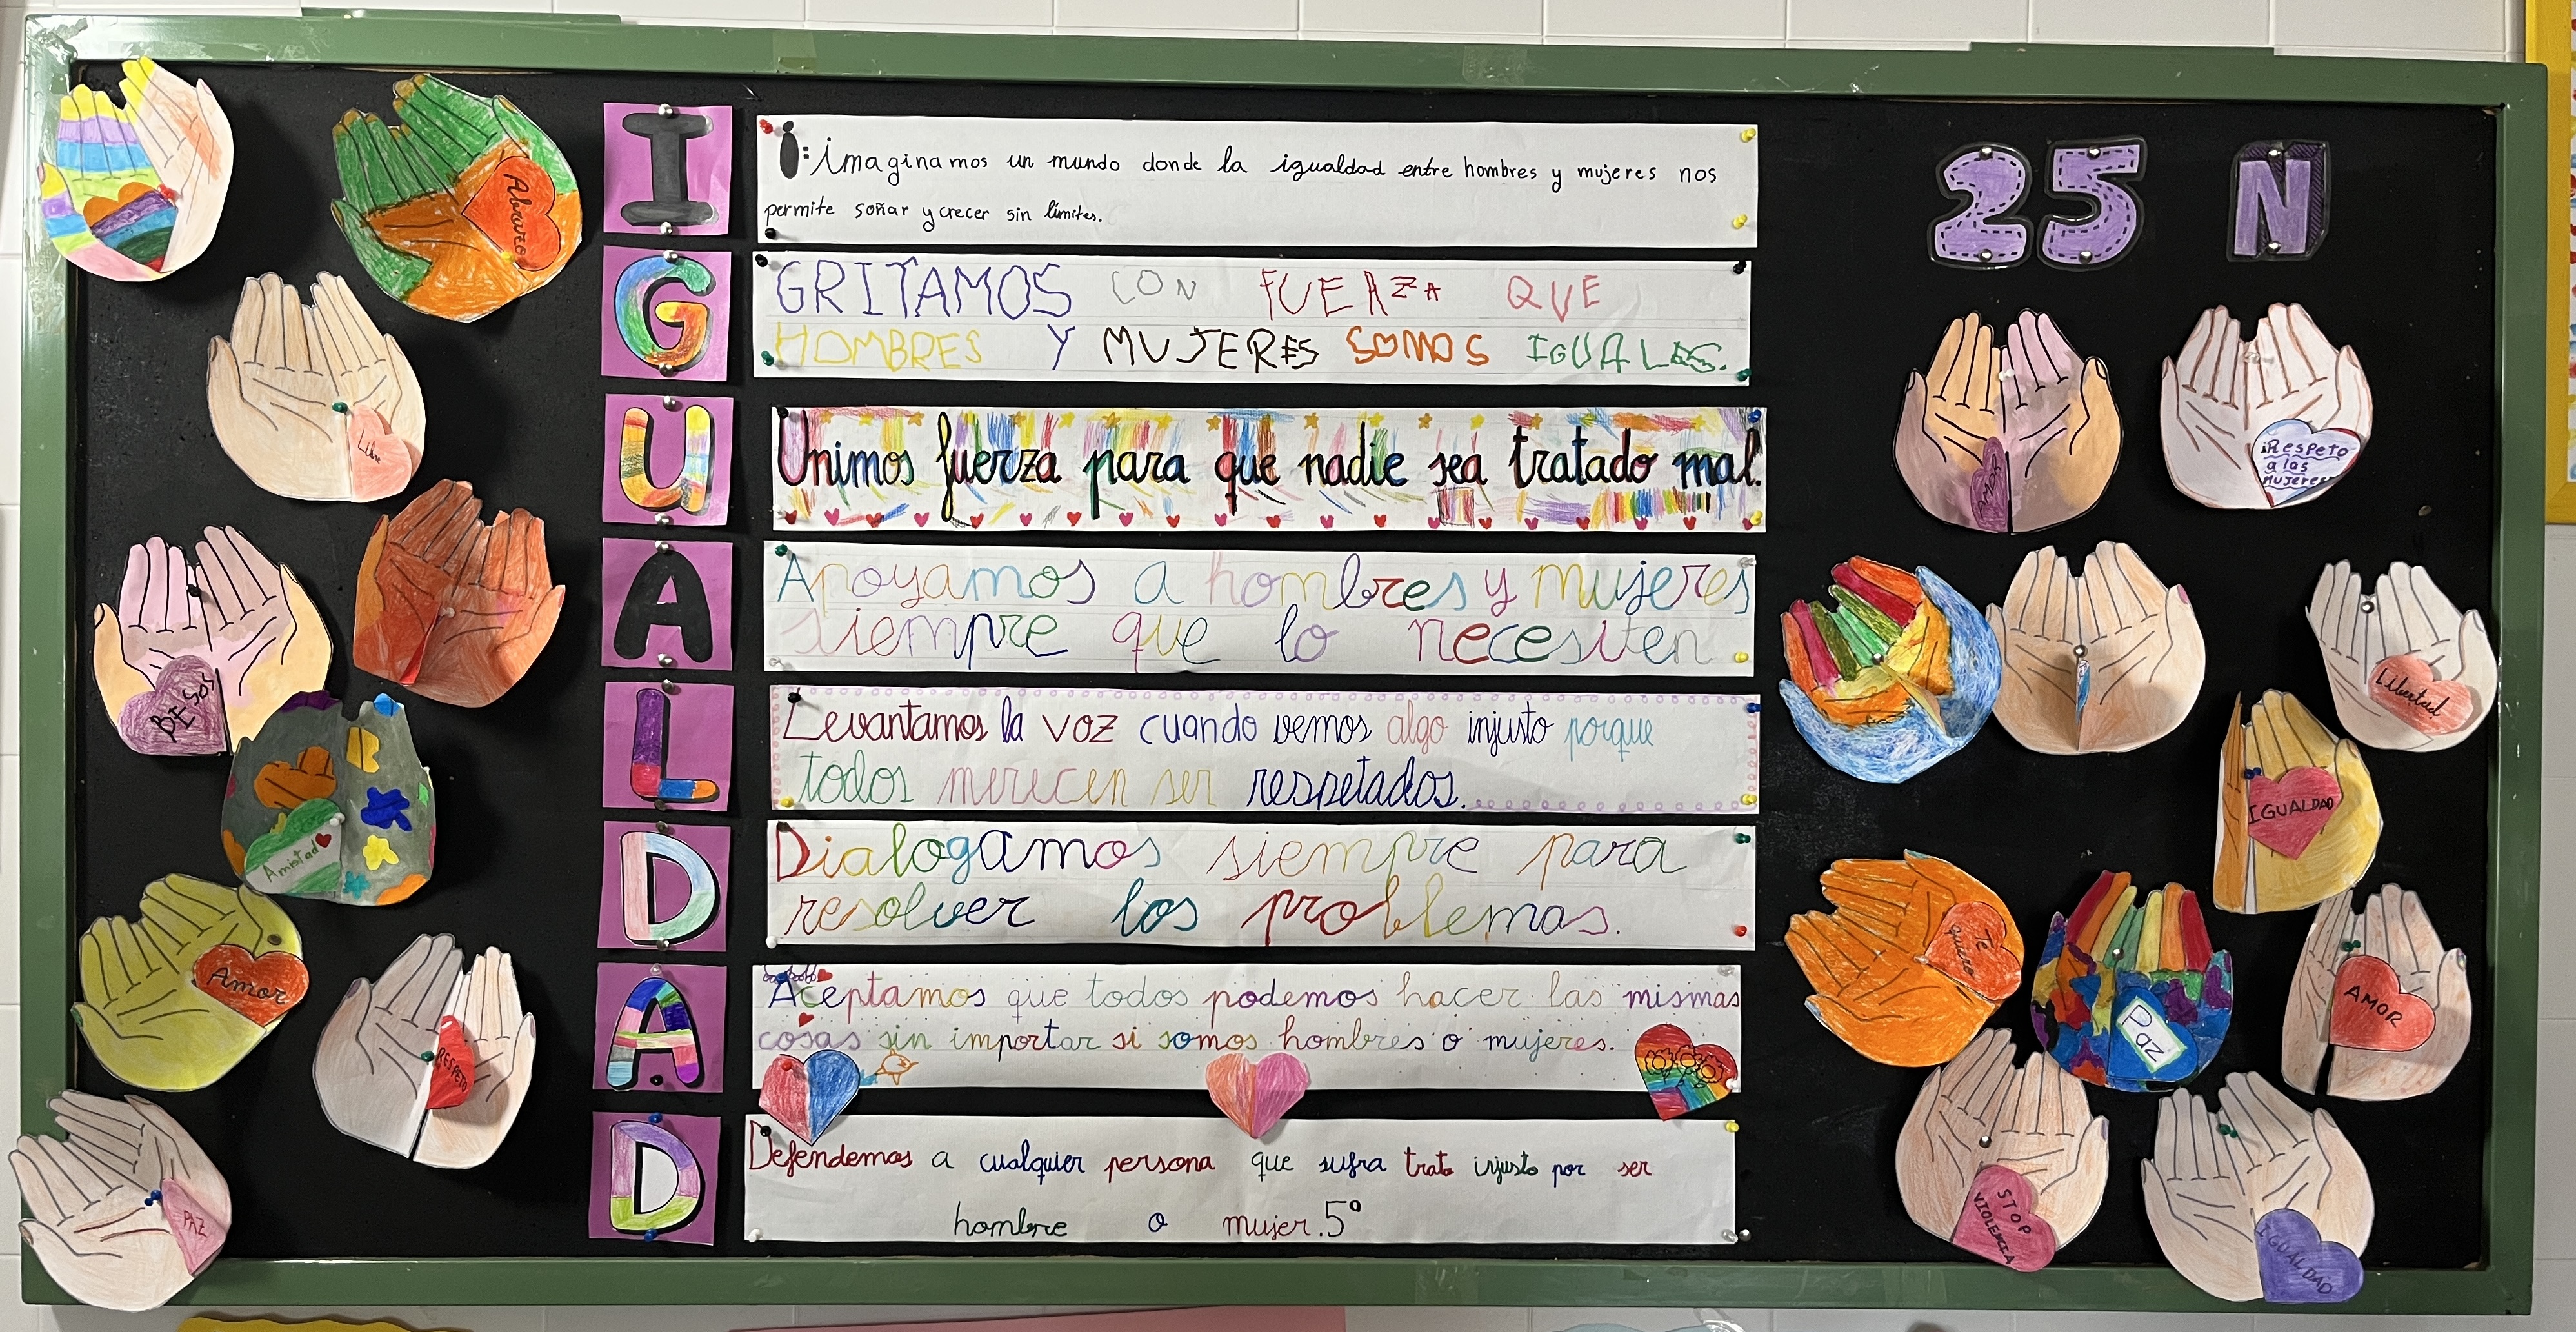 Abrazo
Libre
BESOS
Amistad
Amor
RESPETO
PAZ
I
G
U
A
L
D
A
D
i: imaginamos un mundo donde la igualdad entre hombres y mujeres nos
permite soñar y crecer sin límites.
GRITAMOS CON FUERZA QUE
HOMBRES Y MUJERES SOMOS IGUALES.
Unimos fuerza para que nadie sea tratado mal.
Apoyamos a hombres y mujeres
siempre que lo necesiten
Levantamos la voz cuando vemos algo injusto porque
todos merecen ser respetados.
Dialogamos siempre para
resolver los problemas.
Aceptamos que todos podemos hacer las mismas
cosas sin importar si somos hombres o mujeres.
Defendemos a cualquier persona que sufra trato injusto por ser
hombre o mujer. 5º
25 N
¡Respeto
a las
mujeres
Libertad
IGUALDAD
Te
quiero
Paz
AMOR
STOP
VIOLENCIA
IGUALDAD